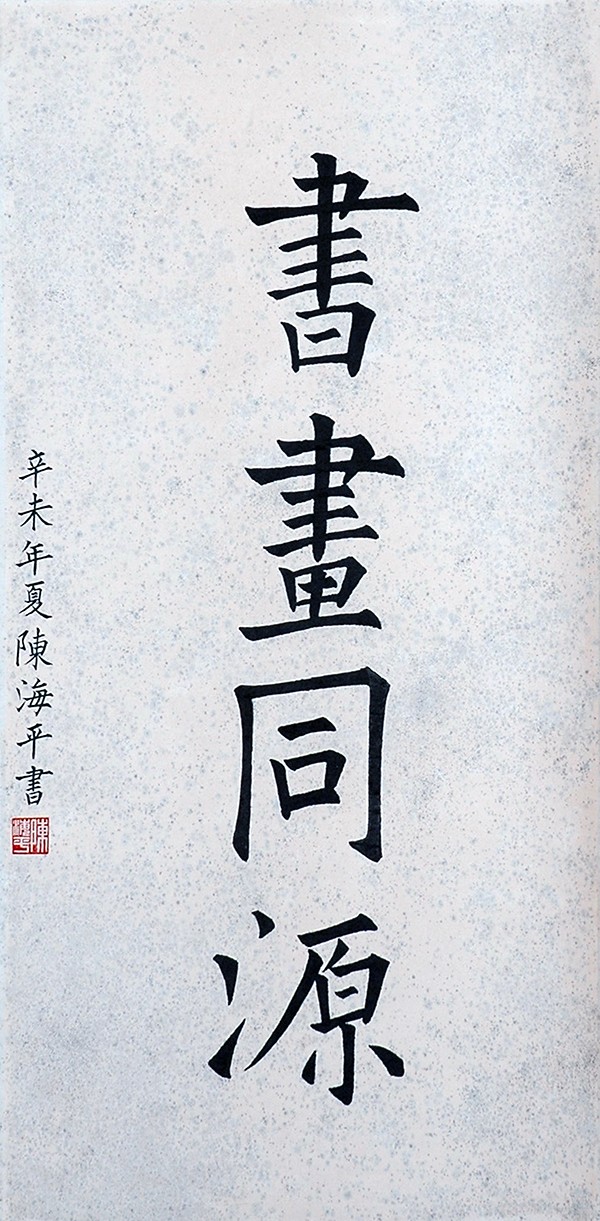 書畫同源
辛未年夏陳海平書